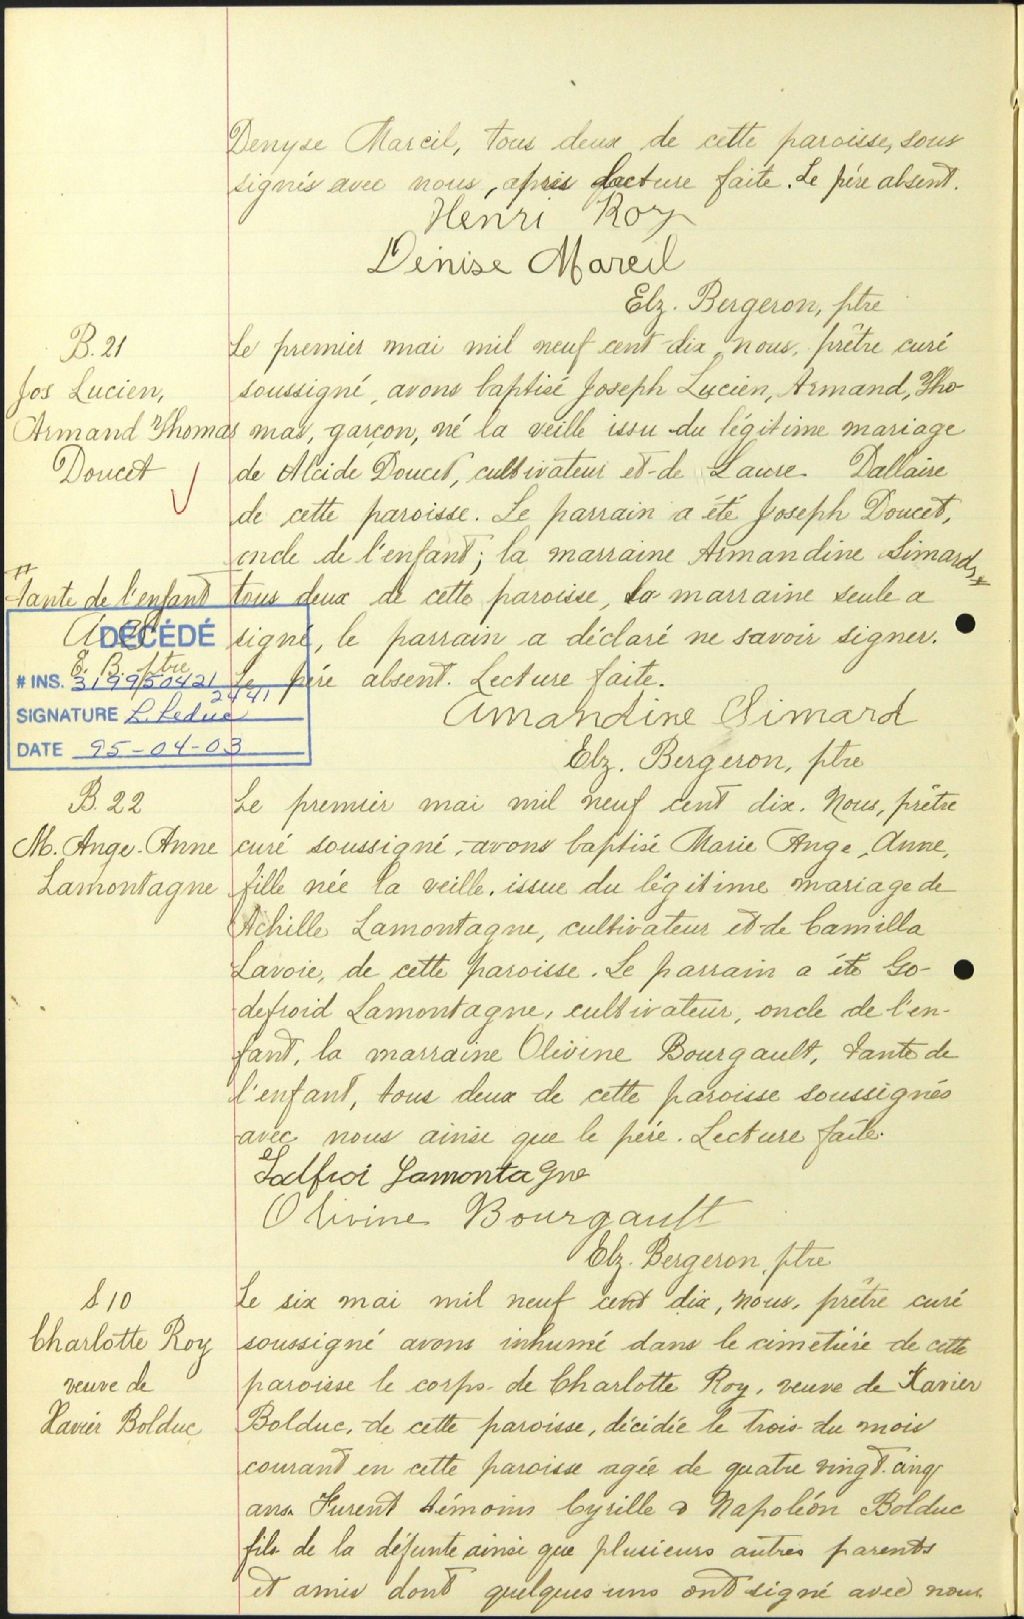 Denyse Marcil, tous deux de cette paroisse, sous
signés avec nous, après lecture faite. Le père absent.
Henri Roy
Dénise Marcil
Elz. Bergeron, ptre
B. 21
Jos Lucien,
Armand Thomas
Doucet
Le premier mai mil neuf cent dix, nous, prêtre curé
soussigné, avons baptisé Joseph Lucien, Armand, Tho-
mas, garçon, né la veille issu du légitime mariage
de Alcide Doucet, cultivateur et de Laure Dallaire
de cette paroisse. Le parrain a été Joseph Doucet,
oncle de l'enfant; la marraine Armandine Simard,
tous deux de cette paroisse, la marraine seule a
signé, le parrain a déclaré ne savoir signer.
Le père absent. Lecture faite.
tante de l'enfant
E. B. ptre
DÉCÉDÉ
# INS. 319950421
2441
SIGNATURE L. Leduc
DATE 95-04-03
Amandine Simard
Elz. Bergeron, ptre
B. 22
M. Ange-Anne
Lamontagne
Le premier mai mil neuf cent dix. Nous, prêtre
curé soussigné, avons baptisé Marie Ange, Anne,
fille née la veille, issue du légitime mariage de
Achille Lamontagne, cultivateur et de Camilla
Lavoie, de cette paroisse. Le parrain a été Go-
defroid Lamontagne, cultivateur, oncle de l'en-
fant, la marraine Olivine Bourgault, tante de
l'enfant, tous deux de cette paroisse soussignés
avec nous ainsi que le père. Lecture faite.
Lamontagne
Olivine Bourgault
Elz. Bergeron, ptre
S 10
Charlotte Roy
veuve de
Xavier Bolduc
Le six mai mil neuf cent dix, nous, prêtre curé
soussigné avons inhumé dans le cimetière de cette
paroisse le corps de Charlotte Roy, veuve de Xavier
Bolduc, de cette paroisse, décédée le trois du mois
courant en cette paroisse agée de quatre vingt cinq
ans. Furent témoins Cyrille & Napoléon Bolduc
fils de la défunte ainsi que plusieurs autres parents
et amis dont quelques uns ont signé avec nous